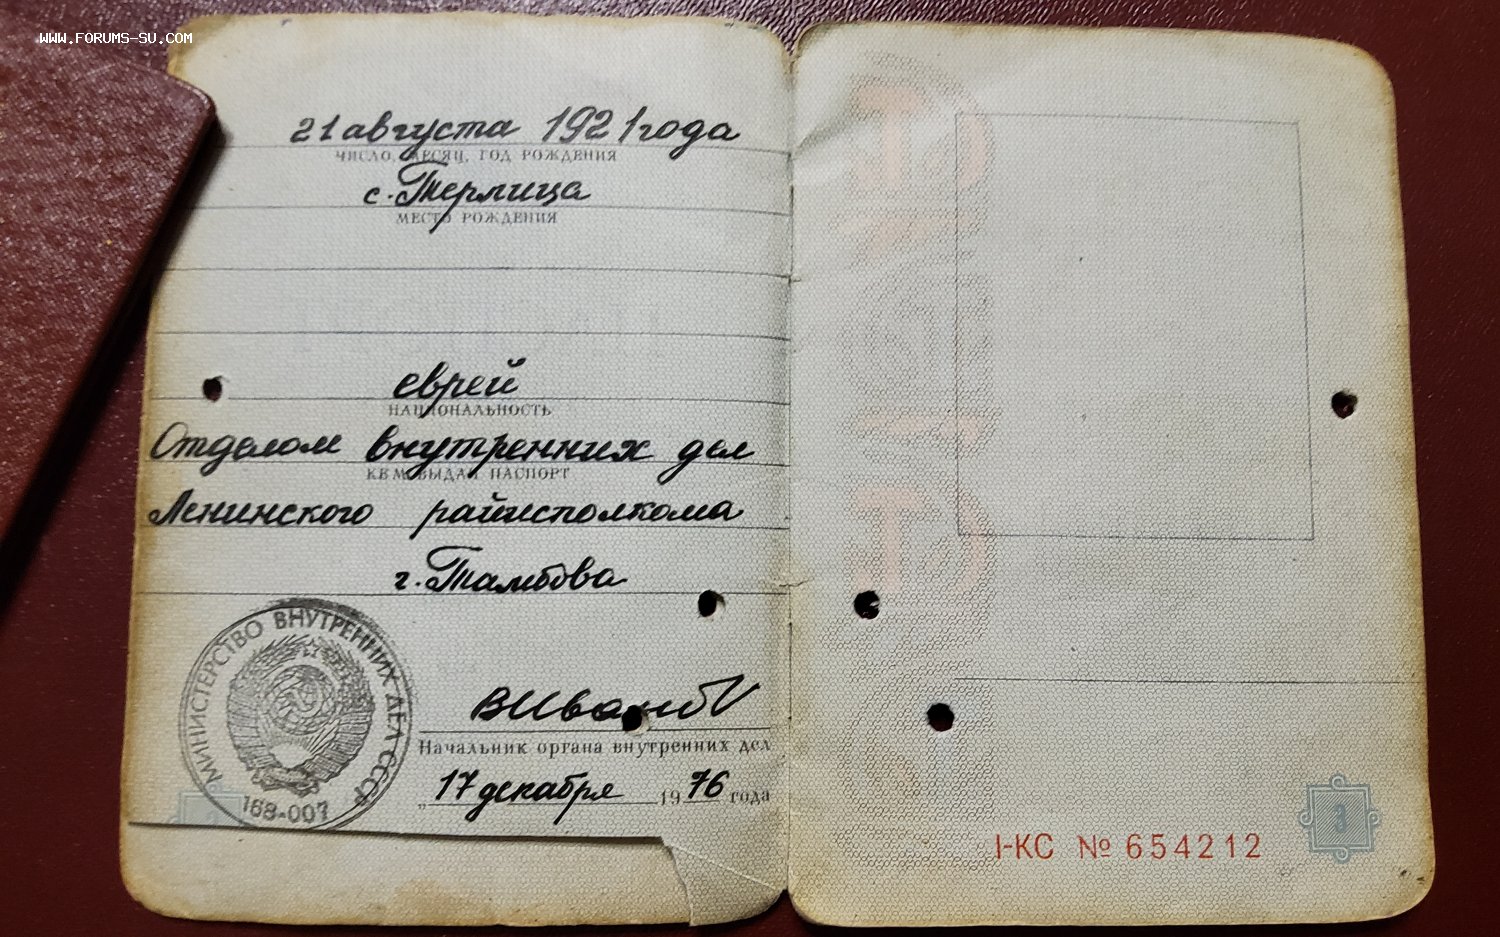 www.forums-su.com
21 августа 1921 года
ЧИСЛО, МЕСЯЦ, ГОД РОЖДЕНИЯ
с. Терлица
МЕСТО РОЖДЕНИЯ
еврей
НАЦИОНАЛЬНОСТЬ
Отделом внутренних дел
КЕМ ВЫДАН ПАСПОРТ
Ленинского райисполкома
г. Тамбова
МИНИСТЕРСТВО ВНУТРЕННИХ ДЕЛ СССР
168-007
ВИванов
Начальник органа внутренних дел
„17 декабря 1976 года
I-КС № 654212
3